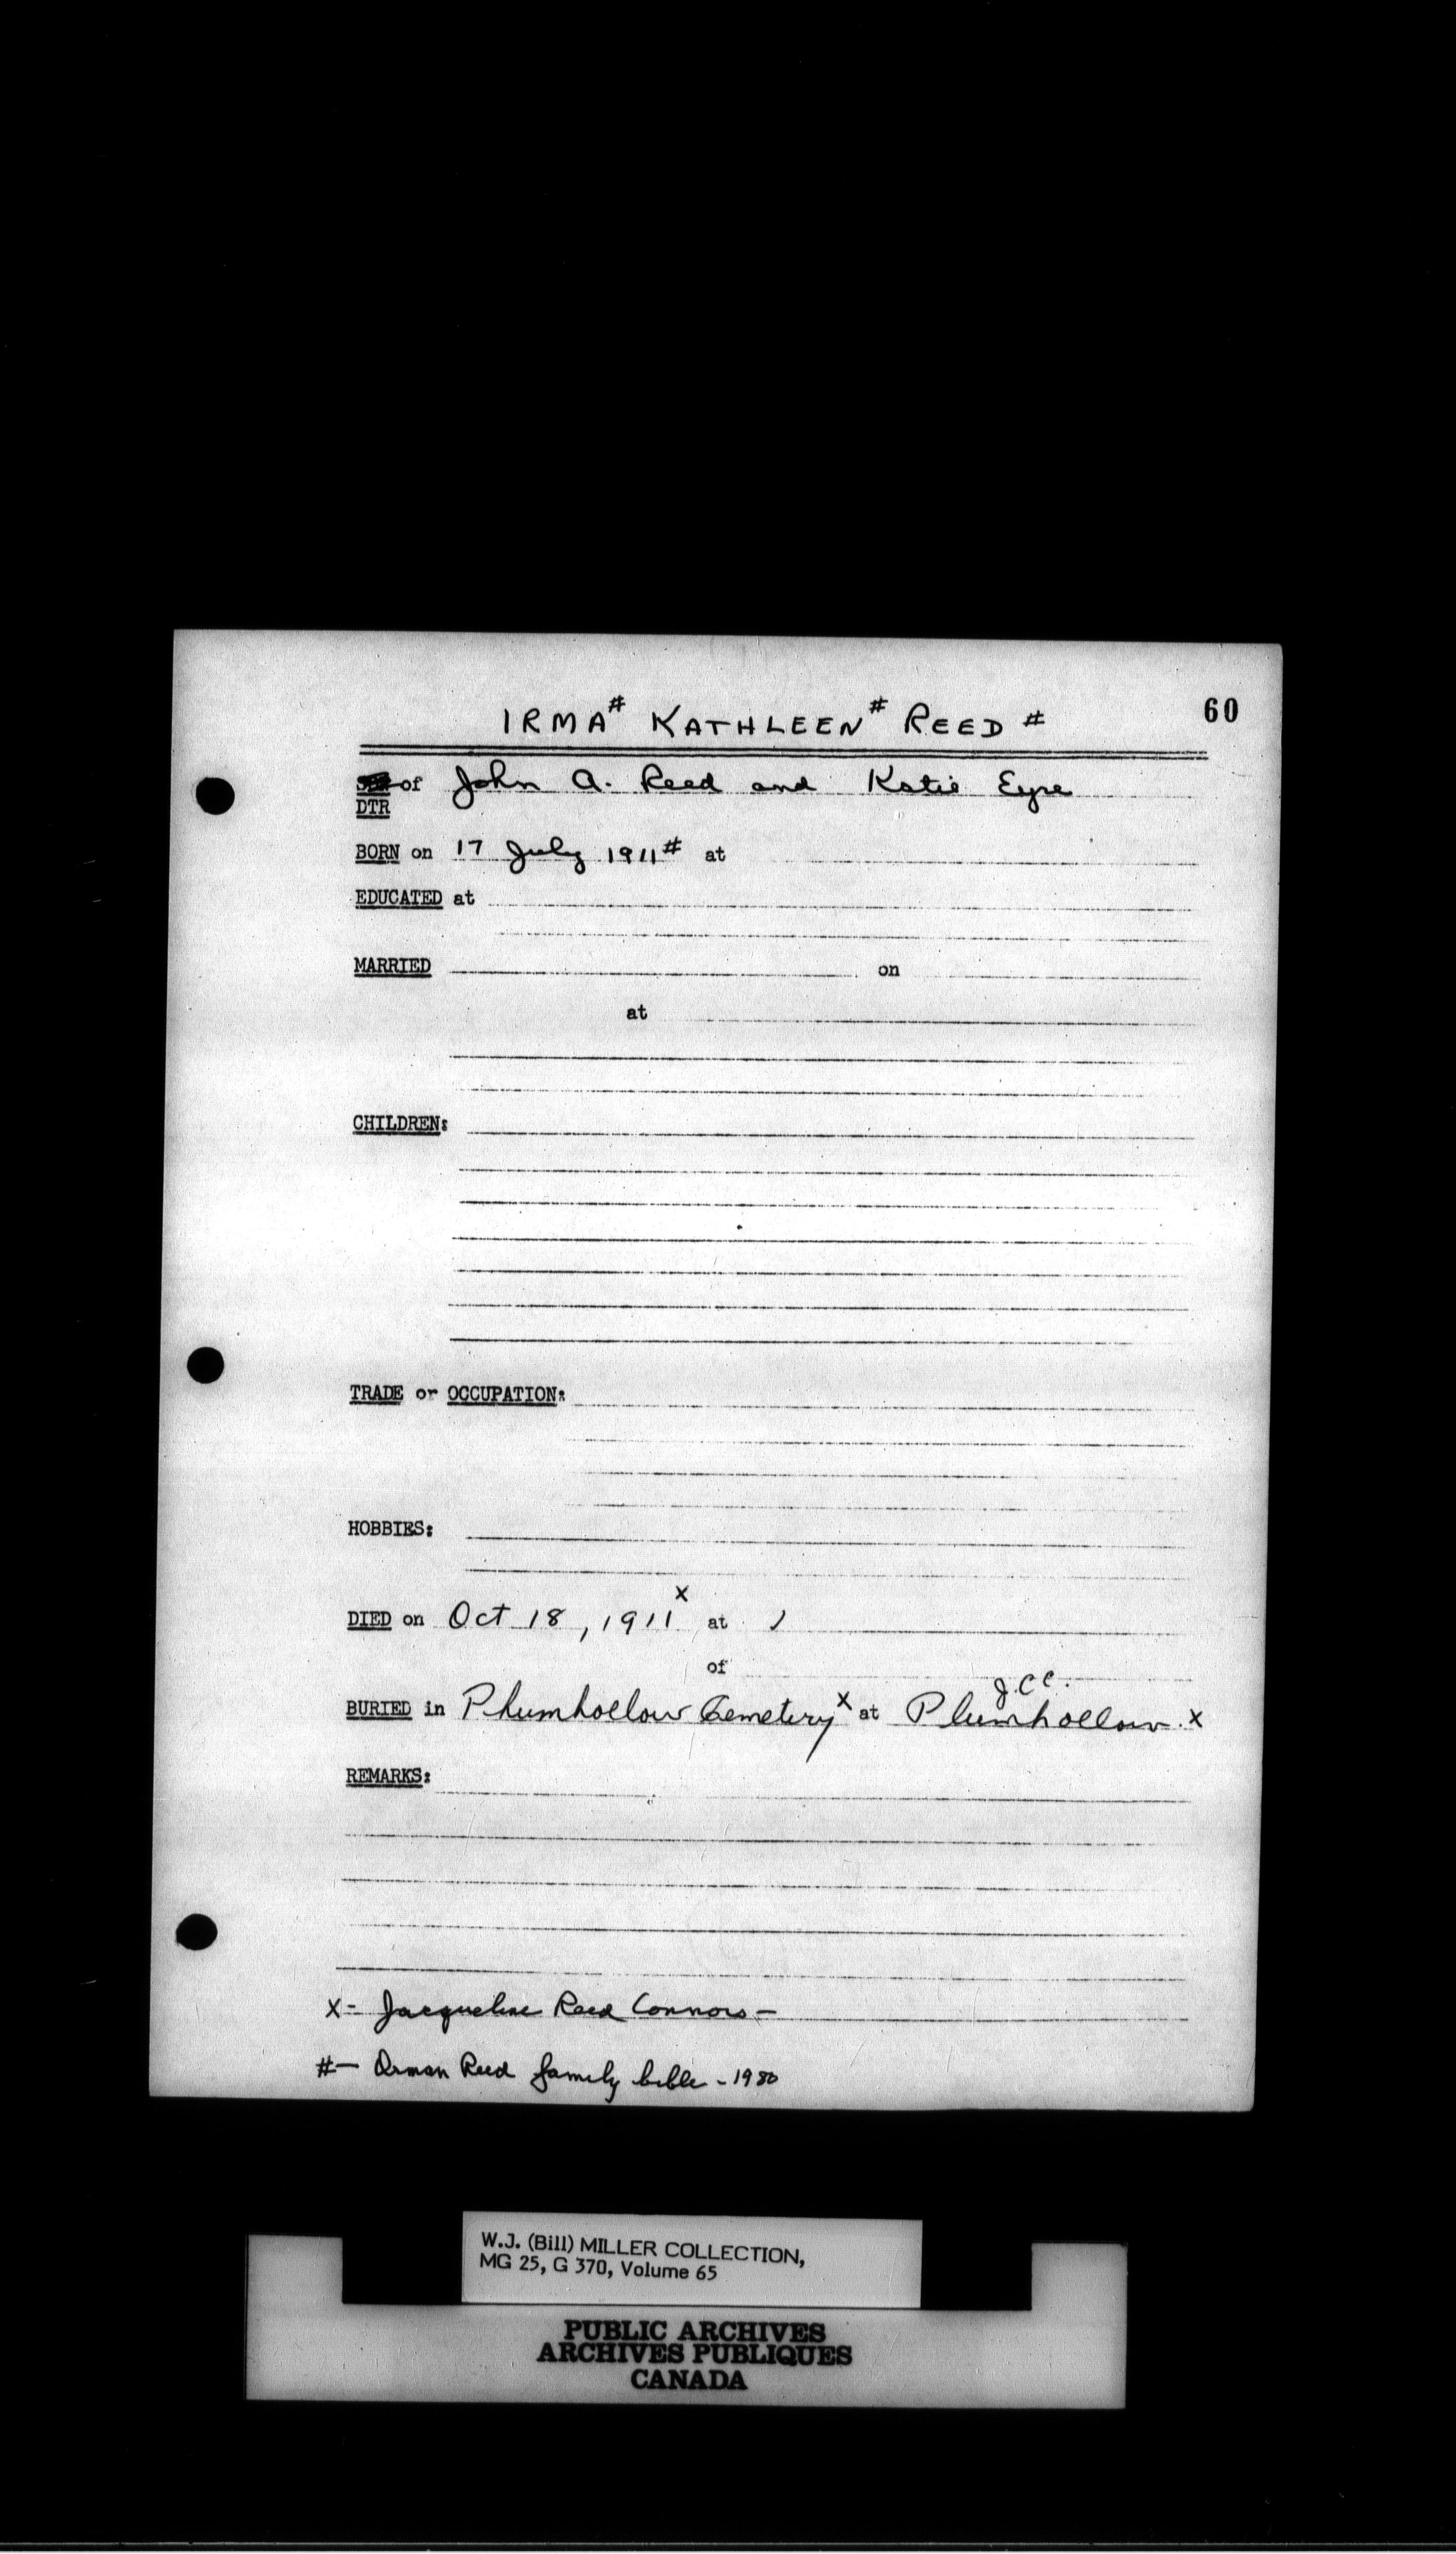 60
IRMA# KATHLEEN# REED #
of John A. Reed and Katie Eyre
DTR
BORN on 17 July 1911# at
EDUCATED at
MARRIED on
at
CHILDREN:
TRADE or OCCUPATION:
HOBBIES:
DIED on Oct 18, 1911 x at
of
J.C.C.
BURIED in Plumhollow Cemetery x at Plumhollow. x
REMARKS:
x- Jacqueline Reed Connors -
#- Orman Reed family bible - 1980
W.J. (Bill) MILLER COLLECTION,
MG 25, G 370, Volume 65
PUBLIC ARCHIVES
ARCHIVES PUBLIQUES
CANADA